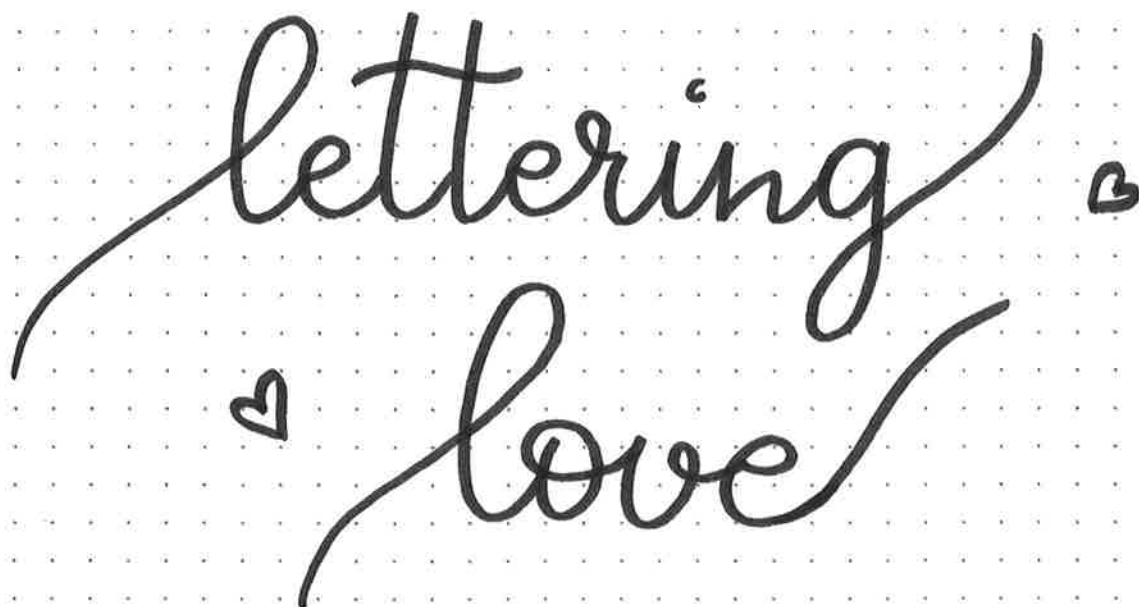 lettering
love